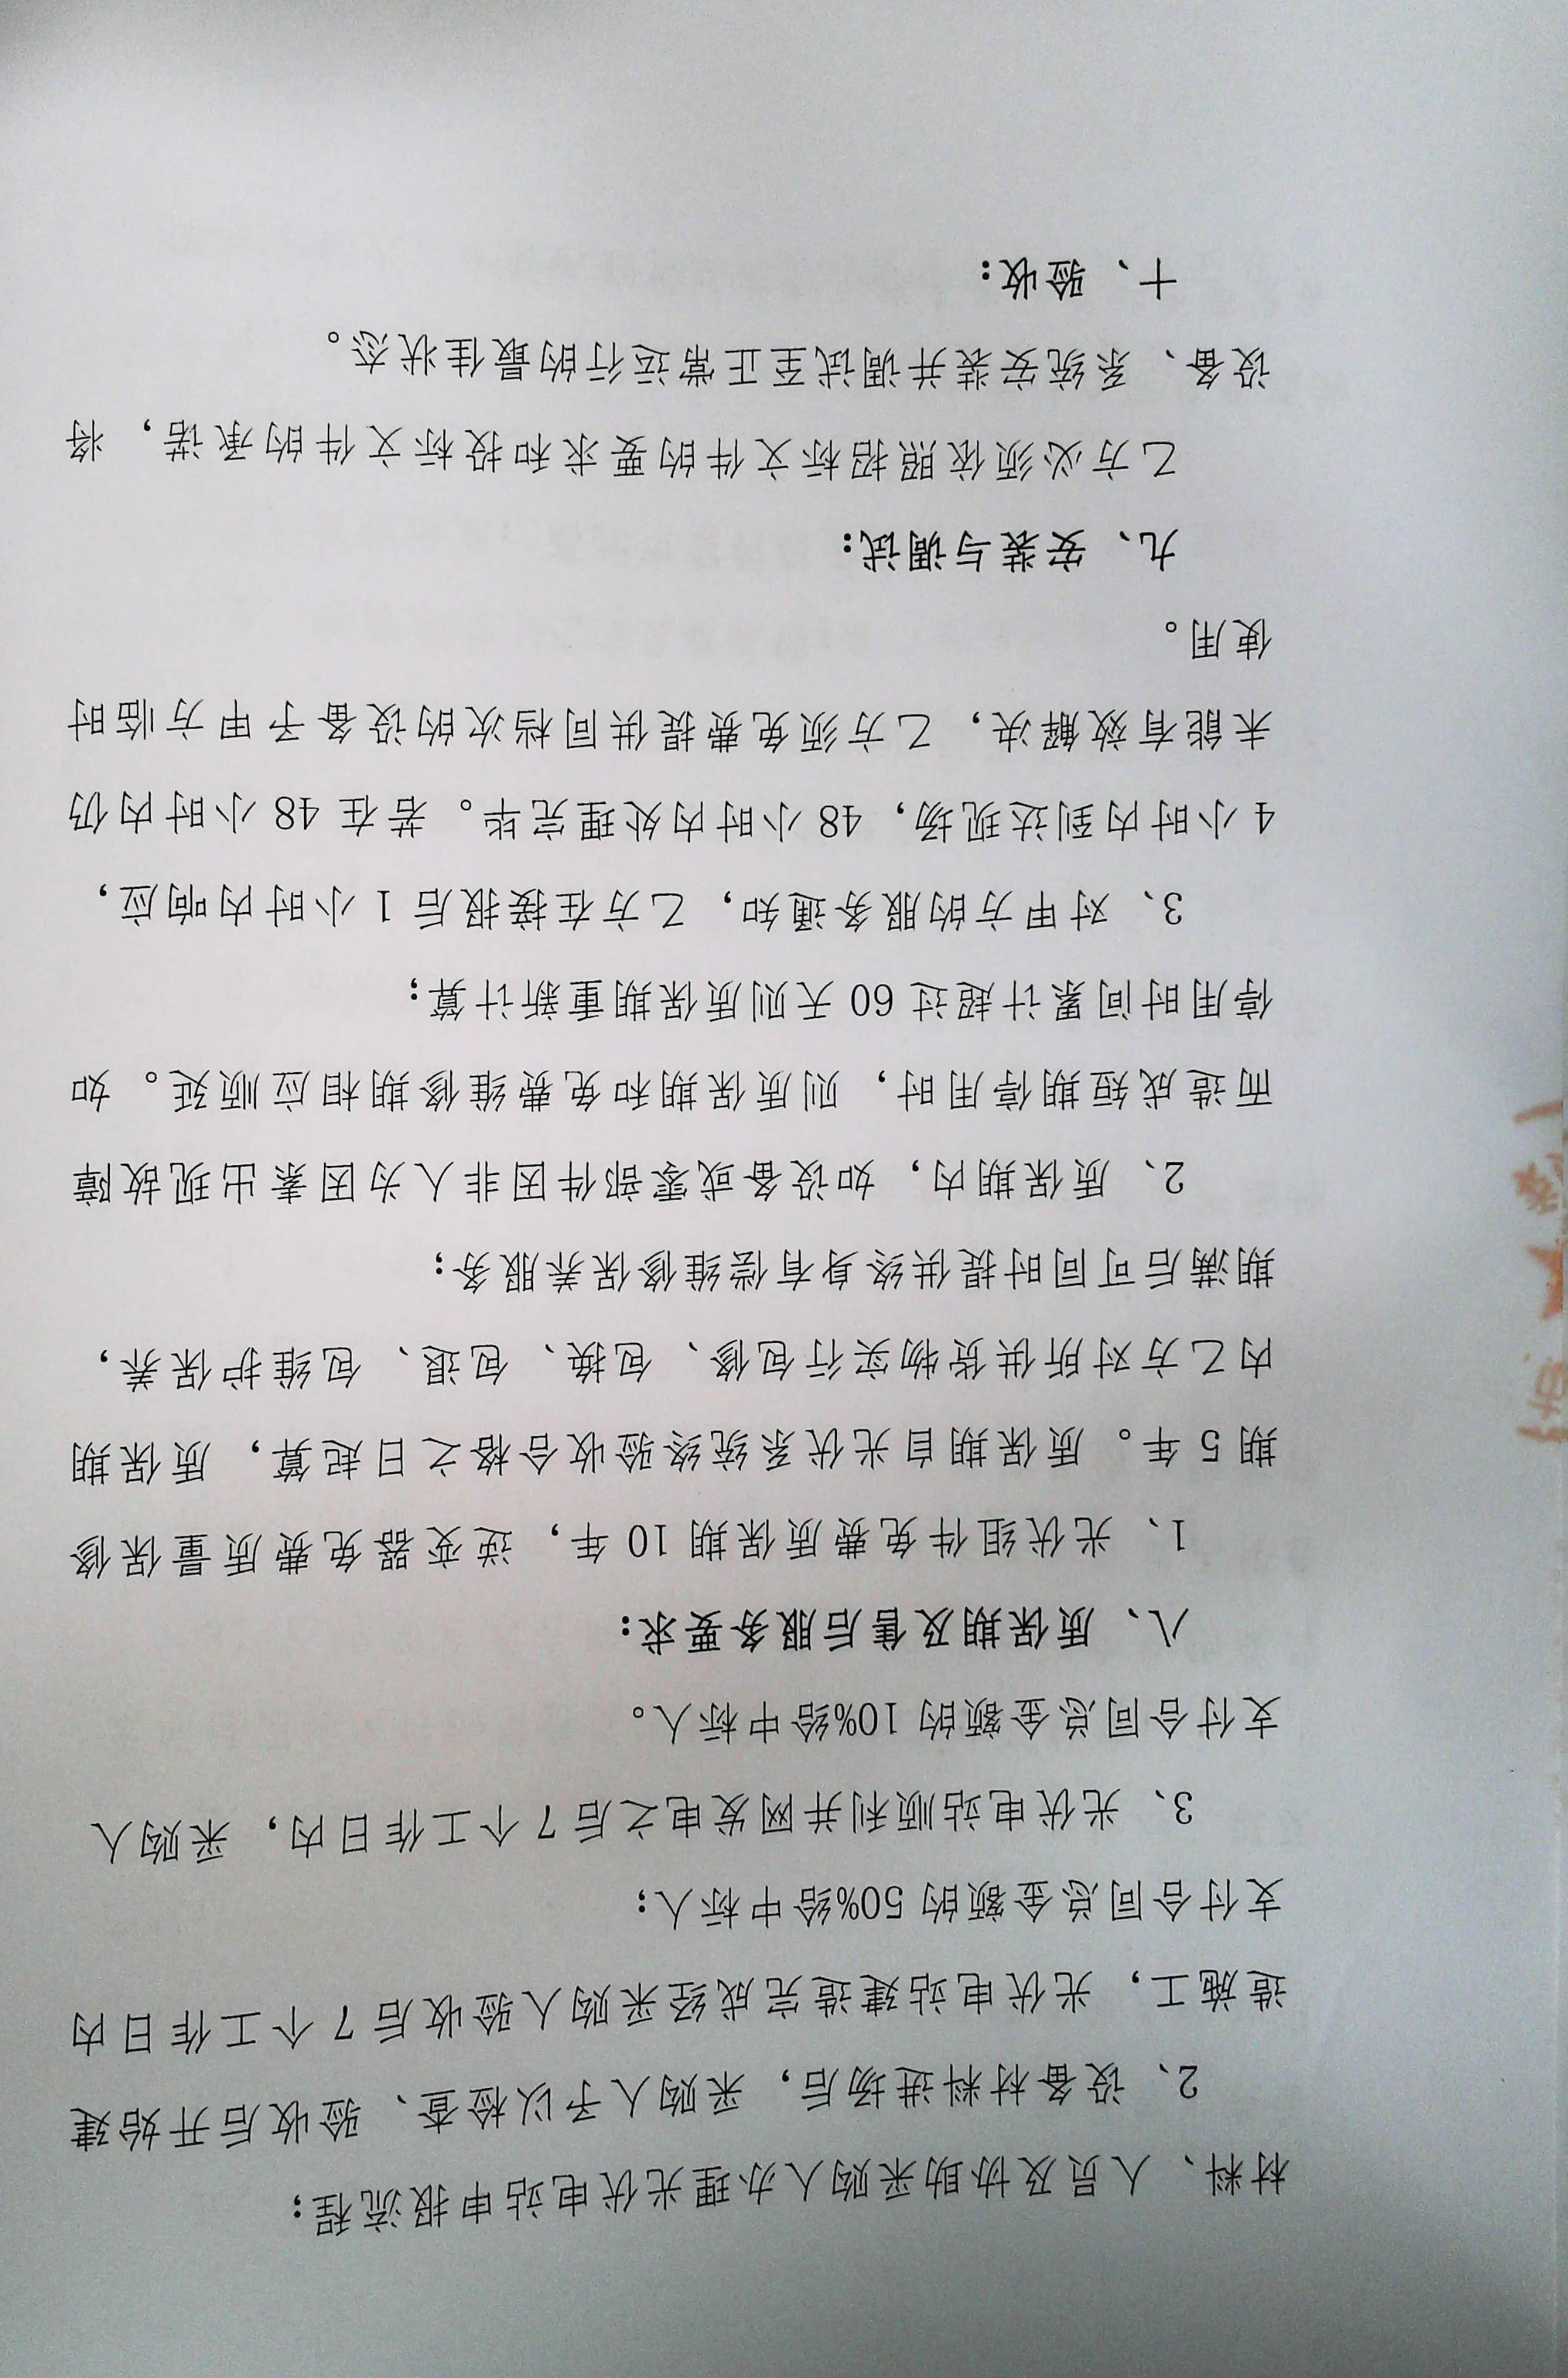 材料、人员及协助采购人办理光伏电站申报流程；
2、设备材料进场后，采购人予以检查、验收后开始建
造施工，光伏电站建造完成经采购人验收后 7 个工作日内
支付合同总金额的 50%给中标人；
3、光伏电站顺利并网发电之后 7 个工作日内，采购人
支付合同总金额的 10%给中标人。
八、质保期及售后服务要求：
1、光伏组件免费质保期 10 年，逆变器免费质量保修
期 5 年。质保期自光伏系统终验收合格之日起算，质保期
内乙方对所供货物实行包修、包换、包退、包维护保养，
期满后可同时提供终身有偿维修保养服务；
2、质保期内，如设备或零部件因非人为因素出现故障
而造成短期停用时，则质保期和免费维修期相应顺延。如
停用时间累计超过 60 天则质保期重新计算；
3、对甲方的服务通知，乙方在接报后 1 小时内响应，
4 小时内到达现场，48 小时内处理完毕。若在 48 小时内仍
未能有效解决，乙方须免费提供同档次的设备予甲方临时
使用。
九、安装与调试：
乙方必须依照招标文件的要求和投标文件的承诺，将
设备、系统安装并调试至正常运行的最佳状态。
十、验收：